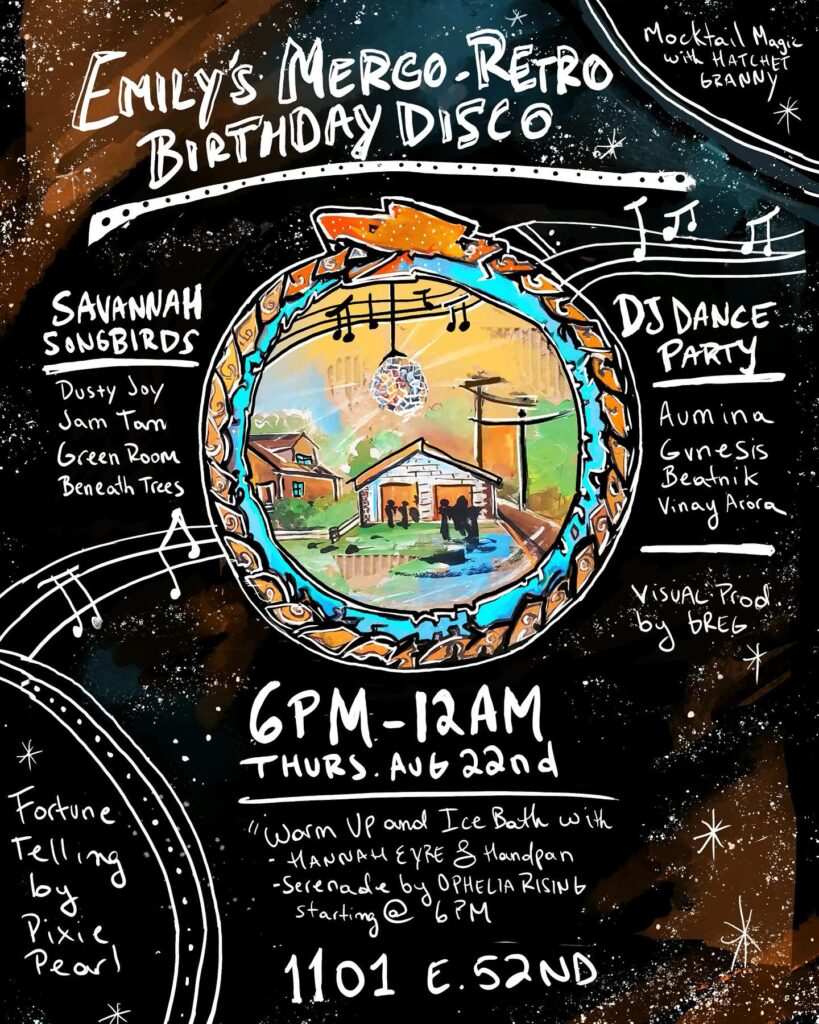 EMILY'S MERCO-RETRO
BIRTHDAY DISCO
Mocktail Magic
with HATCHET
GRANNY
SAVANNAH
SONGBIRDS
Dusty Joy
Jam Tam
Green Room
Beneath Trees
DJ DANCE
PARTY
Aumina
Gvnesis
Beatnik
Vinay Arora
VISUAL Prod
by GREG
6PM-12AM
THURS. AUG 22nd
"Warm Up and Ice Bath with
- HANNAH EYRE & Handpan
-Serenade by OPHELIA RISING
starting @ 6PM
Fortune
Telling
by
Pixie
Pearl
1101 E. 52ND